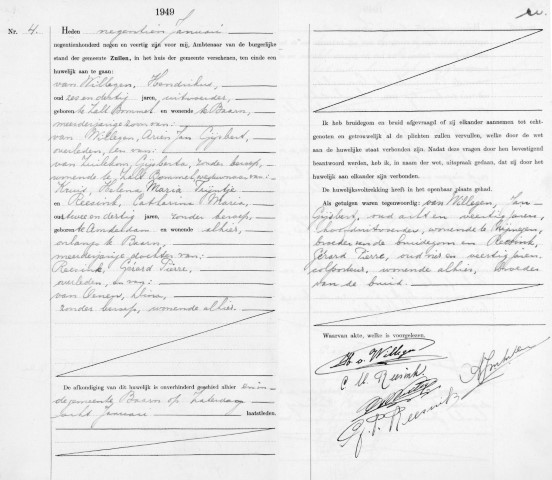 1949
Nr. 4.
Heden negentien Januari
negentienhonderd negen en veertig zijn voor mij, Ambtenaar van de burgerlijke
stand der gemeente Zuilen, in het huis der gemeente verschenen, ten einde een
huwelijk aan te gaan:
van Willegen, Hendrikus,
oud zes en dertig jaren, uitvoerder,
geboren te Zalt Bommel en wonende te Baarn,
meerderjarige zoon van:
van Willegen, Arien Jan Gijsbert,
overleden, en van
van Zuilekom, Gijsberta, zonder beroep,
wonende te Zalt Bommel, weduwnaar van:
Kruis, Helena Maria Trijntje
en Reesink, Catharina Maria,
oud twee en dertig jaren, zonder beroep,
geboren te Amsterdam en wonende alhier,
onlangs te Baarn,
meerderjarige dochter van:
Reesink, Gérard Pierre,
overleden, en van:
van Oenen, Dina,
zonder beroep, wonende alhier.
De afkondiging van dit huwelijk is onverhinderd geschied alhier en in
de gemeente Baarn op Zaterdag
acht Januari laatstleden.
Ik heb bruidegom en bruid afgevraagd of zij elkander aannemen tot echt-
genoten en getrouwelijk al de plichten zullen vervullen, welke door de wet
aan de huwelijke staat verbonden zijn. Nadat deze vragen door hen bevestigend
beantwoord werden, heb ik, in naam der wet, uitspraak gedaan, dat zij door het
huwelijk aan elkander zijn verbonden.
De huwelijksvoltrekking heeft in het openbaar plaats gehad.
Als getuigen waren tegenwoordig: van Willegen, Jan
Gijsbert, oud acht en veertig jaren,
wonende te Nijmegen,
broeder van de bruidegom en Reesink,
Gérard Pierre, oud vier en veertig jaren,
colporteur, wonende alhier, broeder
van de bruid.
Waarvan akte, welke is voorgelezen.
H. v. Willegen
C M Reesink
G. P. Reesink